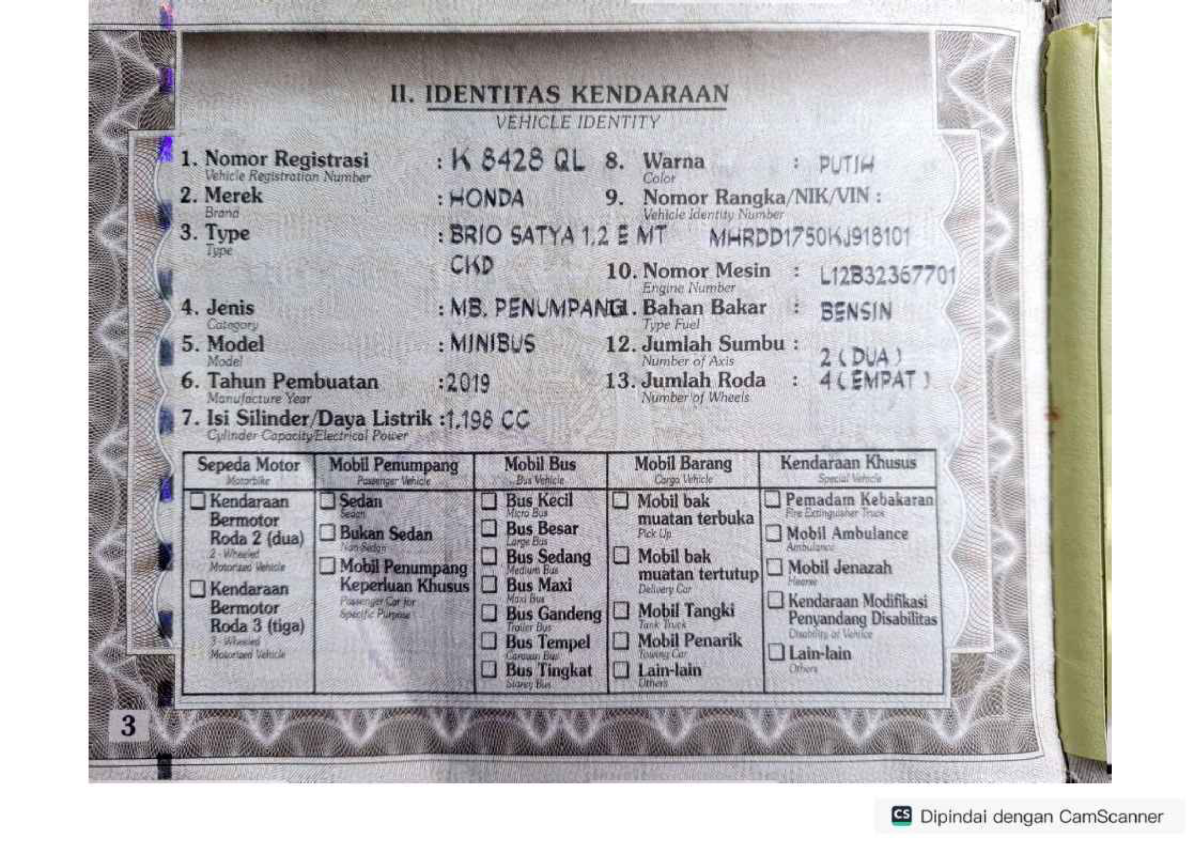 II. IDENTITAS KENDARAAN
VEHICLE IDENTITY
1. Nomor Registrasi : K 8428 QL
Vehicle Registration Number
2. Merek : HONDA
Brand
3. Type : BRIO SATYA 1.2 E MT
Type
CKD
4. Jenis : MB. PENUMPANG
Category
5. Model : MINIBUS
Model
6. Tahun Pembuatan :2019
Manufacture Year
7. Isi Silinder/Daya Listrik :1.198 CC
Cylinder Capacity/Electrical Power
8. Warna : PUTIH
Color
9. Nomor Rangka/NIK/VIN :
Vehicle Identity Number
MHRDD1750KJ918101
10. Nomor Mesin : L12B32367701
Engine Number
11. Bahan Bakar : BENSIN
Type Fuel
12. Jumlah Sumbu : 2 ( DUA )
Number of Axis
13. Jumlah Roda : 4 ( EMPAT )
Number of Wheels
Sepeda Motor
Motorbike
Kendaraan
Bermotor
Roda 2 (dua)
2 - Wheeled
Motorized Vehicle
Kendaraan
Bermotor
Roda 3 (tiga)
3 - Wheeled
Motorized Vehicle
Mobil Penumpang
Passenger Vehicle
Sedan
Sedan
Bukan Sedan
Non Sedan
Mobil Penumpang
Keperluan Khusus
Passenger Car for
Specific Purpose
Mobil Bus
Bus Vehicle
Bus Kecil
Micro Bus
Bus Besar
Large Bus
Bus Sedang
Medium Bus
Bus Maxi
Maxi Bus
Bus Gandeng
Trailer Bus
Bus Tempel
Caravan Bus
Bus Tingkat
Storey Bus
Mobil Barang
Cargo Vehicle
Mobil bak
muatan terbuka
Pick Up
Mobil bak
muatan tertutup
Delivery Car
Mobil Tangki
Tank Truck
Mobil Penarik
Towing Car
Lain-lain
Others
Kendaraan Khusus
Special Vehicle
Pemadam Kebakaran
Fire Extinguisher Truck
Mobil Ambulance
Ambulance
Mobil Jenazah
Hearse
Kendaraan Modifikasi
Penyandang Disabilitas
Disability of Vehicle
Lain-lain
Others
3
CS Dipindai dengan CamScanner